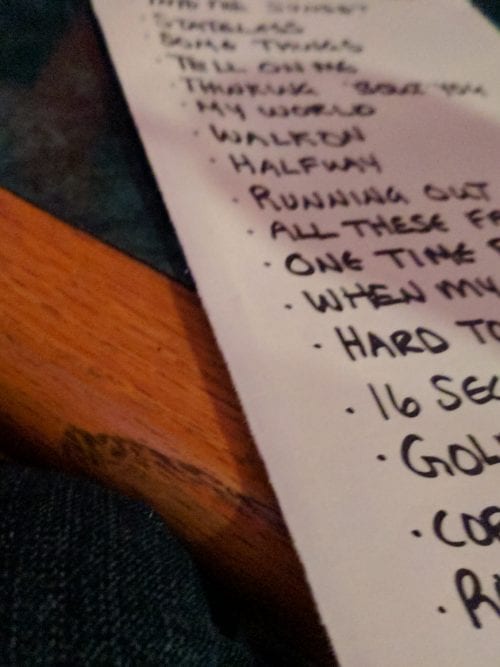 STATELESS
SOME THINGS
TELL ON ME
THINKING 'BOUT YOU
MY WORLD
WALK ON
HALFWAY
RUNNING OUT
ALL THESE
ONE TIME
WHEN MY
HARD TO
16 SEC
GOL
CO
R